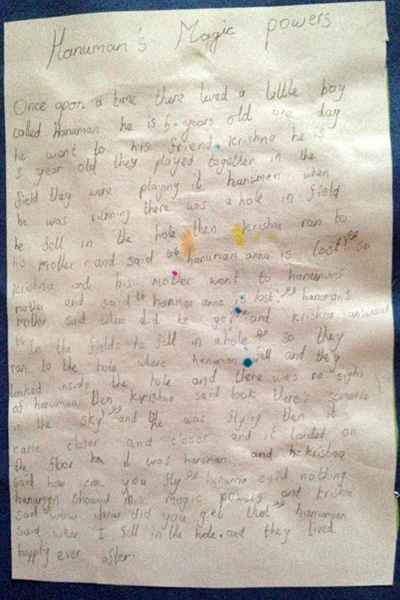 Hanuman's Magic powers
Once upon a time there lived a little boy
called Hanuman he is 5 years old one day
he went to his friend krishna he is
3 year old they played together in the
field they were playing it hanuman when
he was running there was a hole in field
he fell in the hole then krishna ran to
his mother and said "hanuman anna is lost" so
krishna and his mother went to hanuman's
mother and said "hanman anna is lost" hanuman's
mother said where did he go and krishna
"In the fields he fell in a hole" so they
ran to the hole where hanuman fell and they
looked inside the hole and there was no sighn
of hanuman then kyrishna said look there's
in the sky" and he was flying then it
came closer and closer and it landed on
the floor it was hanuman and krishna
said how can you fly hanuma said nothing
hanuman showed his magic powers and krishna
said "wow how did you get that" hanuman
said when I fell in the hole. and they lived
happily ever after.